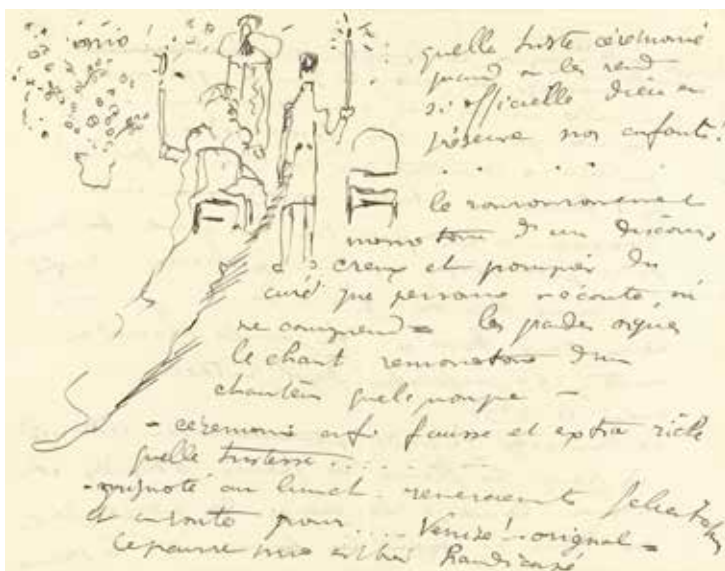 quelle triste céremonie
quand on les rend
si officielle Dieu en
préserve nos enfants!
. . . . .
le ronronnement
monotone d'un discours
creux et pompier du
curé que personne n'écoute ni
ne comprend = les grandes orgues
le chant remonotone d'un
chanteur
- céremonie enfin fausse et extra riche
quelle tristesse.....
- au lunch.
et en route pour.... Venise! - orignal =
Ce pauvre